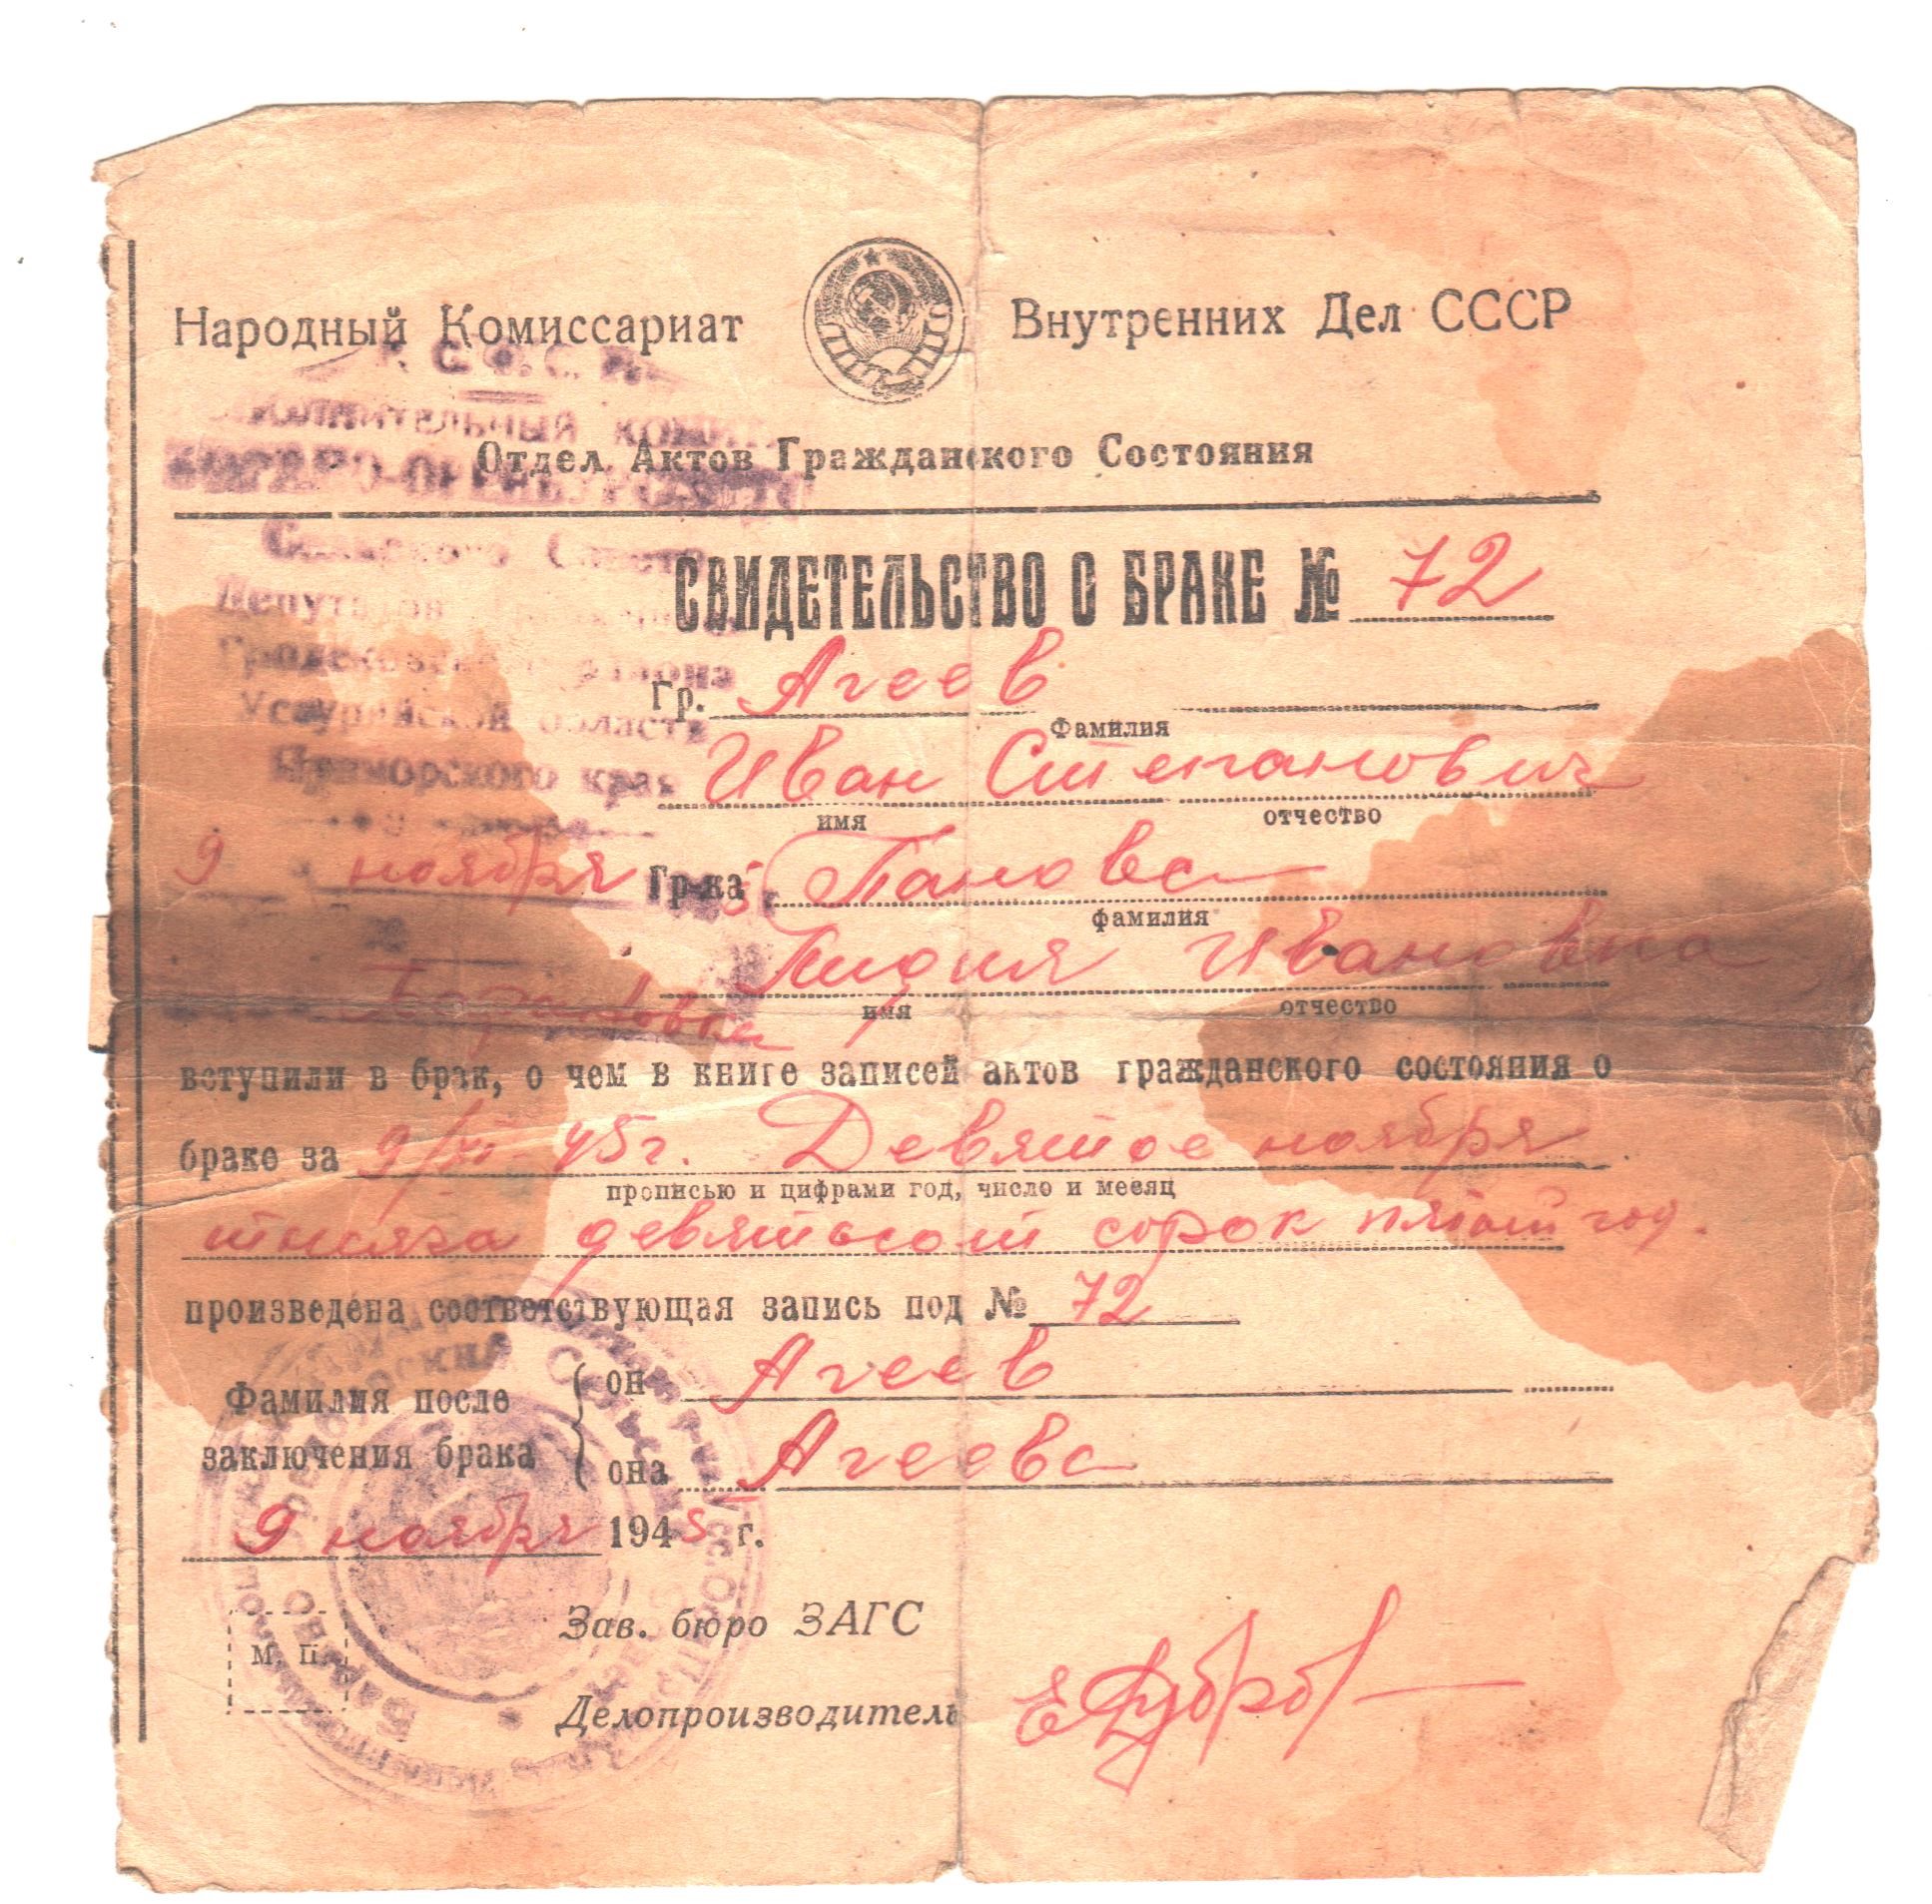 Народный Комиссариат Внутренних Дел СССР
Р. С. Ф. С. Р.
Отдел Актов Гражданского Состояния
Сельского Совета
Депутатов
СВИДЕТЕЛЬСТВО О БРАКЕ № 72
Гродековского района
Гр. Агеев
Фамилия
Уссурийской области
Приморского края
Иван Степанович
имя отчество
9 ноября 5 г.
Гр-ка Панова
фамилия
Лидия Ивановна
имя отчество
вступили в брак, о чем в книге записей актов гражданского состояния о
браке за 9/XI-45г. Девятое ноября
прописью и цифрами год, число и месяц
тысяча девятьсот сорок пятый год.
произведена соответствующая запись под № 72
Фамилия после заключения брака
он Агеев
она Агеева
9 ноября 1945 г.
Зав. бюро ЗАГС
М. П.
Делопроизводитель